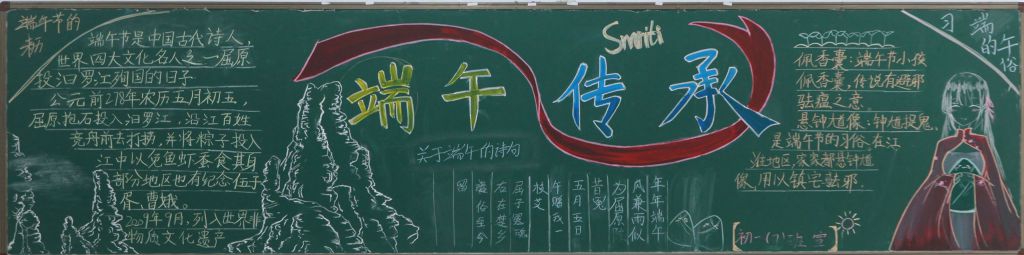 端午节的
端午节是中国古代诗人,
世界四大文化名人之一屈原
投汨罗江殉国的日子
公元前278年农历五月初五,
屈原抱石投入汨罗江,沿江百姓
竞舟前去打捞,并将粽子投入
江中以免鱼虾吞食其身
部分地区也有纪念伍子
胥、曹娥。
2009年9月,列入世界非
物质文化遗产
端午传承
Smriti
关于端午的诗句
年年端午
风兼雨似
为屈原
昔冤
五月五日
午赠我一
枝艾
屈子冤魂
在楚乡
至今
习
端午
的俗
佩香囊:端午节小孩
佩香囊,传说有避邪
驱瘟之意。
悬钟馗像:钟馗捉鬼,
是端午节的习俗.在江
淮地区,家家都悬钟馗
像,用以镇宅驱邪.
初一(7)班 宣